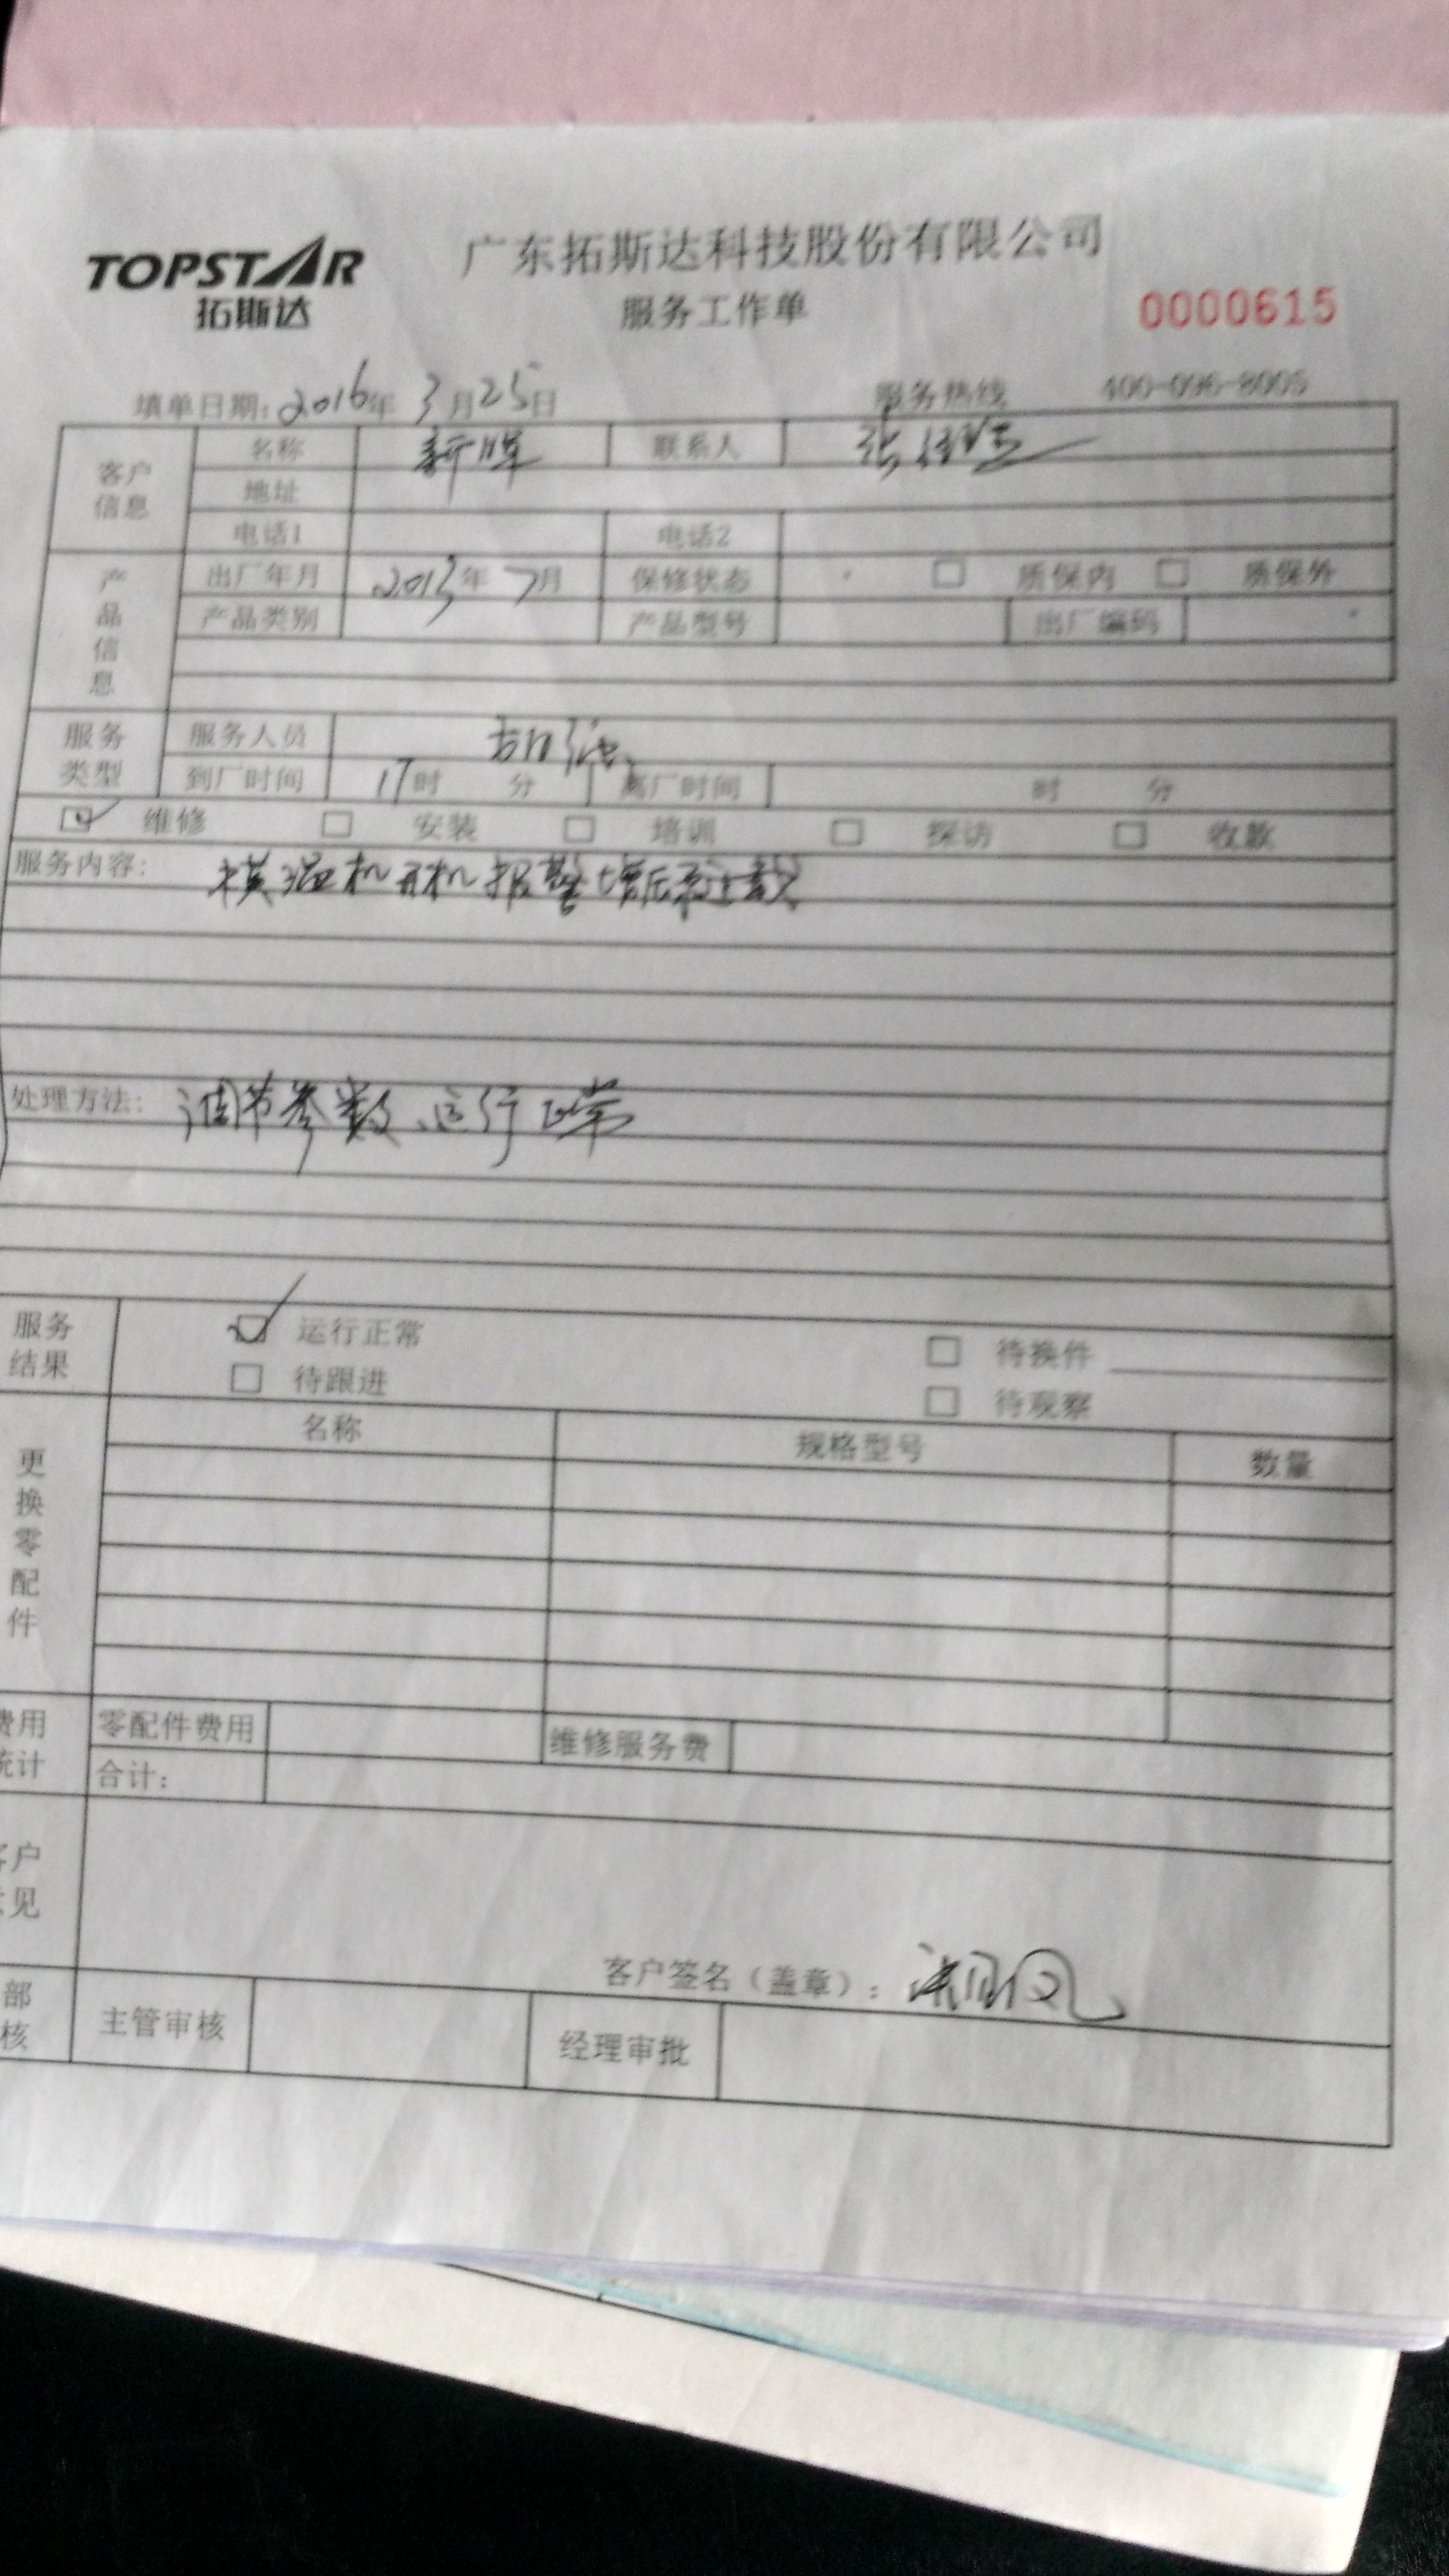 TOPSTAR
拓斯达
广东拓斯达科技股份有限公司
服务工作单
0000615
填单日期: 2016年 3月25日
服务热线 400-096-8005
客户信息
名称 新晖 联系人 张
地址
电话1 电话2
产品信息
出厂年月 2013年 7月 保修状态 质保内 质保外
产品类别 产品型号 出厂编码
服务类型
服务人员
到厂时间 17时 分 离厂时间 时 分
维修 安装 培训 探访 收款
服务内容: 模温机开机报警增压泵过载
处理方法: 调节参数、运行正常
服务结果
运行正常 待换件
待跟进 待观察
更换零配件
名称 规格型号 数量
费用统计
零配件费用 维修服务费
合计:
客户意见
客户签名(盖章):
部核 主管审核 经理审批